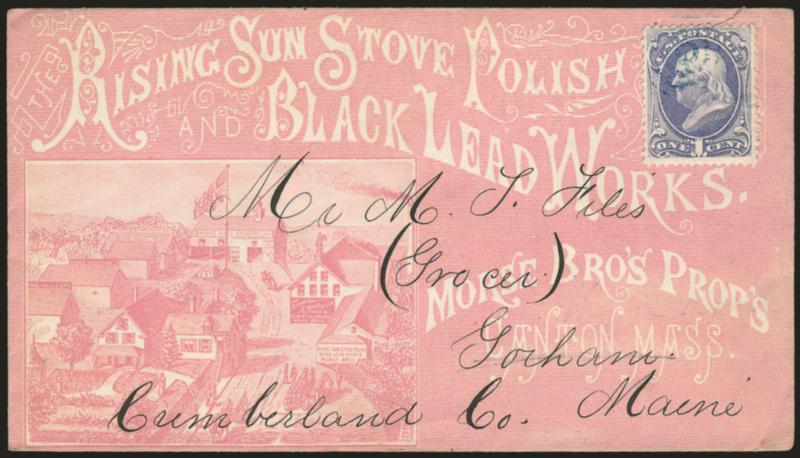 THE RISING SUN STOVE POLISH
AND BLACK LEAD WORKS.
MORSE BRO'S PROP'S
CANTON MASS.
U.S. POSTAGE
ONE 1 CENT
Mr M. T. Files
(Grocer)
Gorham
Cumberland Co. Maine